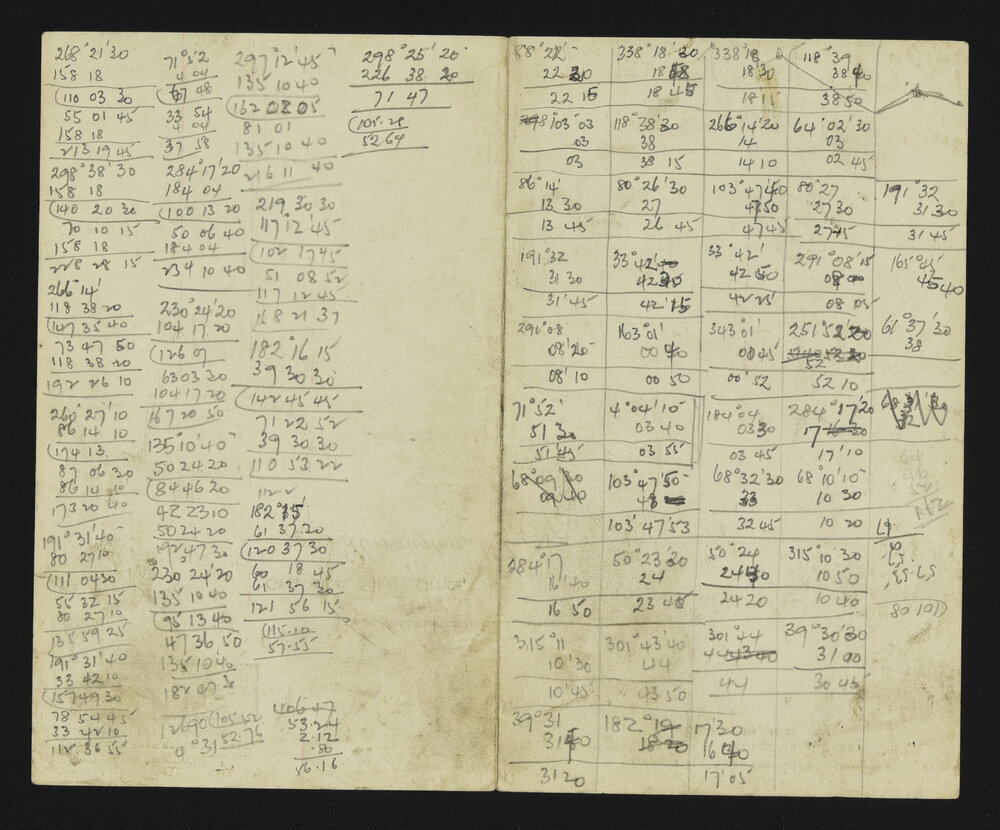 268°21'30
158 18
(110 03 30
55 01 45
158 18
213 19 45
298°38'30
158 18
(140 20 30
70 10 15
158 18
228 28 15
266°14'
118 38 20
(147 35 40
73 47 50
118 38 20
192 26 10
260°27'10
86 14 10
(174 13
87 06 30
86 14 10
173 20 40
191°31'40
80 27 10
(111 04 30
55 32 15
80 27 10
135 59 25
191°31'40
33 42 10
(157 49 30
78 54 45
33 42 10
112 36 55
71°52
4 04
(67 48
33 54
4 04
37 58
284°17'20
184 04
(100 13 20
50 06 40
184 04
234 10 40
230°24'20
104 17 20
(126 07
63 03 30
104 17 20
167 20 50
135°10'40
50 24 20
(84 46 20
42 23 10
50 24 20
192 47 30
230 24'20
135 10 40
(95 13 40
47 36 50
135 10 40
182 47 30
(105.52
52.76
297°12'45
135 10 40
(162 02 05
81 01
135 10 40
216 11 40
219 30 30
117°12'45
(102 17 45
51 08 52
117 12 45
168 21 37
182°16 15
39 30 30
(142 45 45
71 22 52
39 30 30
110 53 22
182°15'
61 37 30
(120 37 30
60 18 45
61 37 30
121 56 15
(115.10
57.55
53.24
2.12
.80
56.16
298°25'20
226 38 20
71 47
(105.28
52.64
88°22' 338°18'30 338°18 118°39
22 30 18 18'30 38 40
22 15 18 45 18 15 38 50
103°03 118°38'30 266°14'20 64°02'30
03 38 14 03
03 38 15 14 10 02 45
86°14' 80°26'30 103°47'40 80°27 191°32
13 30 27 47 50 27 30 31 30
13 45 26 45 47 45 27 15 31 45
191°32 33°42' 33°42' 291°08'15 165°45'
31 30 42 42 08 45 40
31'45 42'15 42 25 08 05
291°08 163°01' 343°01' 251°52'20 61°37'30
08'20 00 40 00 45 52 38
08'10 00 50 00'52 52 10
71°52' 4°04'10 184°04 284°17'20
51 30 03 40 03 30 17
51'45 03 55 03 45 17'10
68°09 103°47'50 68°32'30 68°10'10
09 40 48 33 10 30
103°47'53 32 45 10 20
284°17 50°23'30 50°24 315°10 30
16'40 24 24 10 50
16 50 23 45 24 20 10 40
80 10
315°11 301°43'40 301°44 39°30'30
10'30 44 31 00
10'45 43 50 44 30 45
39°31 182° 17'30
31 18 16
31 20 17'05